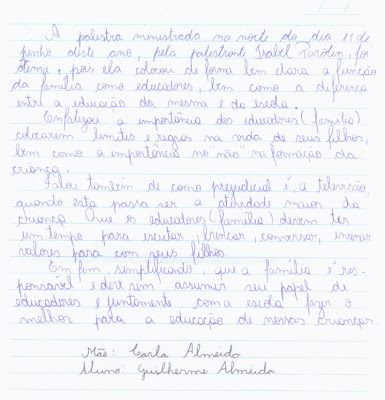 A palestra ministrada na noite do dia 19 de
junho deste ano, pela palestrante Isabel Parolin, foi
ótima, pois ela colocou de forma bem clara a função
da família como educadores, bem como a diferença
entre a educação da mesma e da escola.
Enfatizou a importância dos educadores (família)
colocarem limites e regras na vida de seus filhos,
bem como a importância no "não" na formação da
criança.
Falou também de como prejudicial é, a televisão,
quando esta passa ser a atividade maior da
criança. Que os educatores (família) devem ter
um tempo para escutar, brincar, conversar, ensinar
valores para com seus filhos.
Em fim, simplificando, que a família é res-
ponsável e deve sim assumir seu papel de
educadores e juntamente com a escola fazer o
melhor para a educação de nossas crianças.
Mãe: Carla Almeida
Aluno: Guilherme Almeida